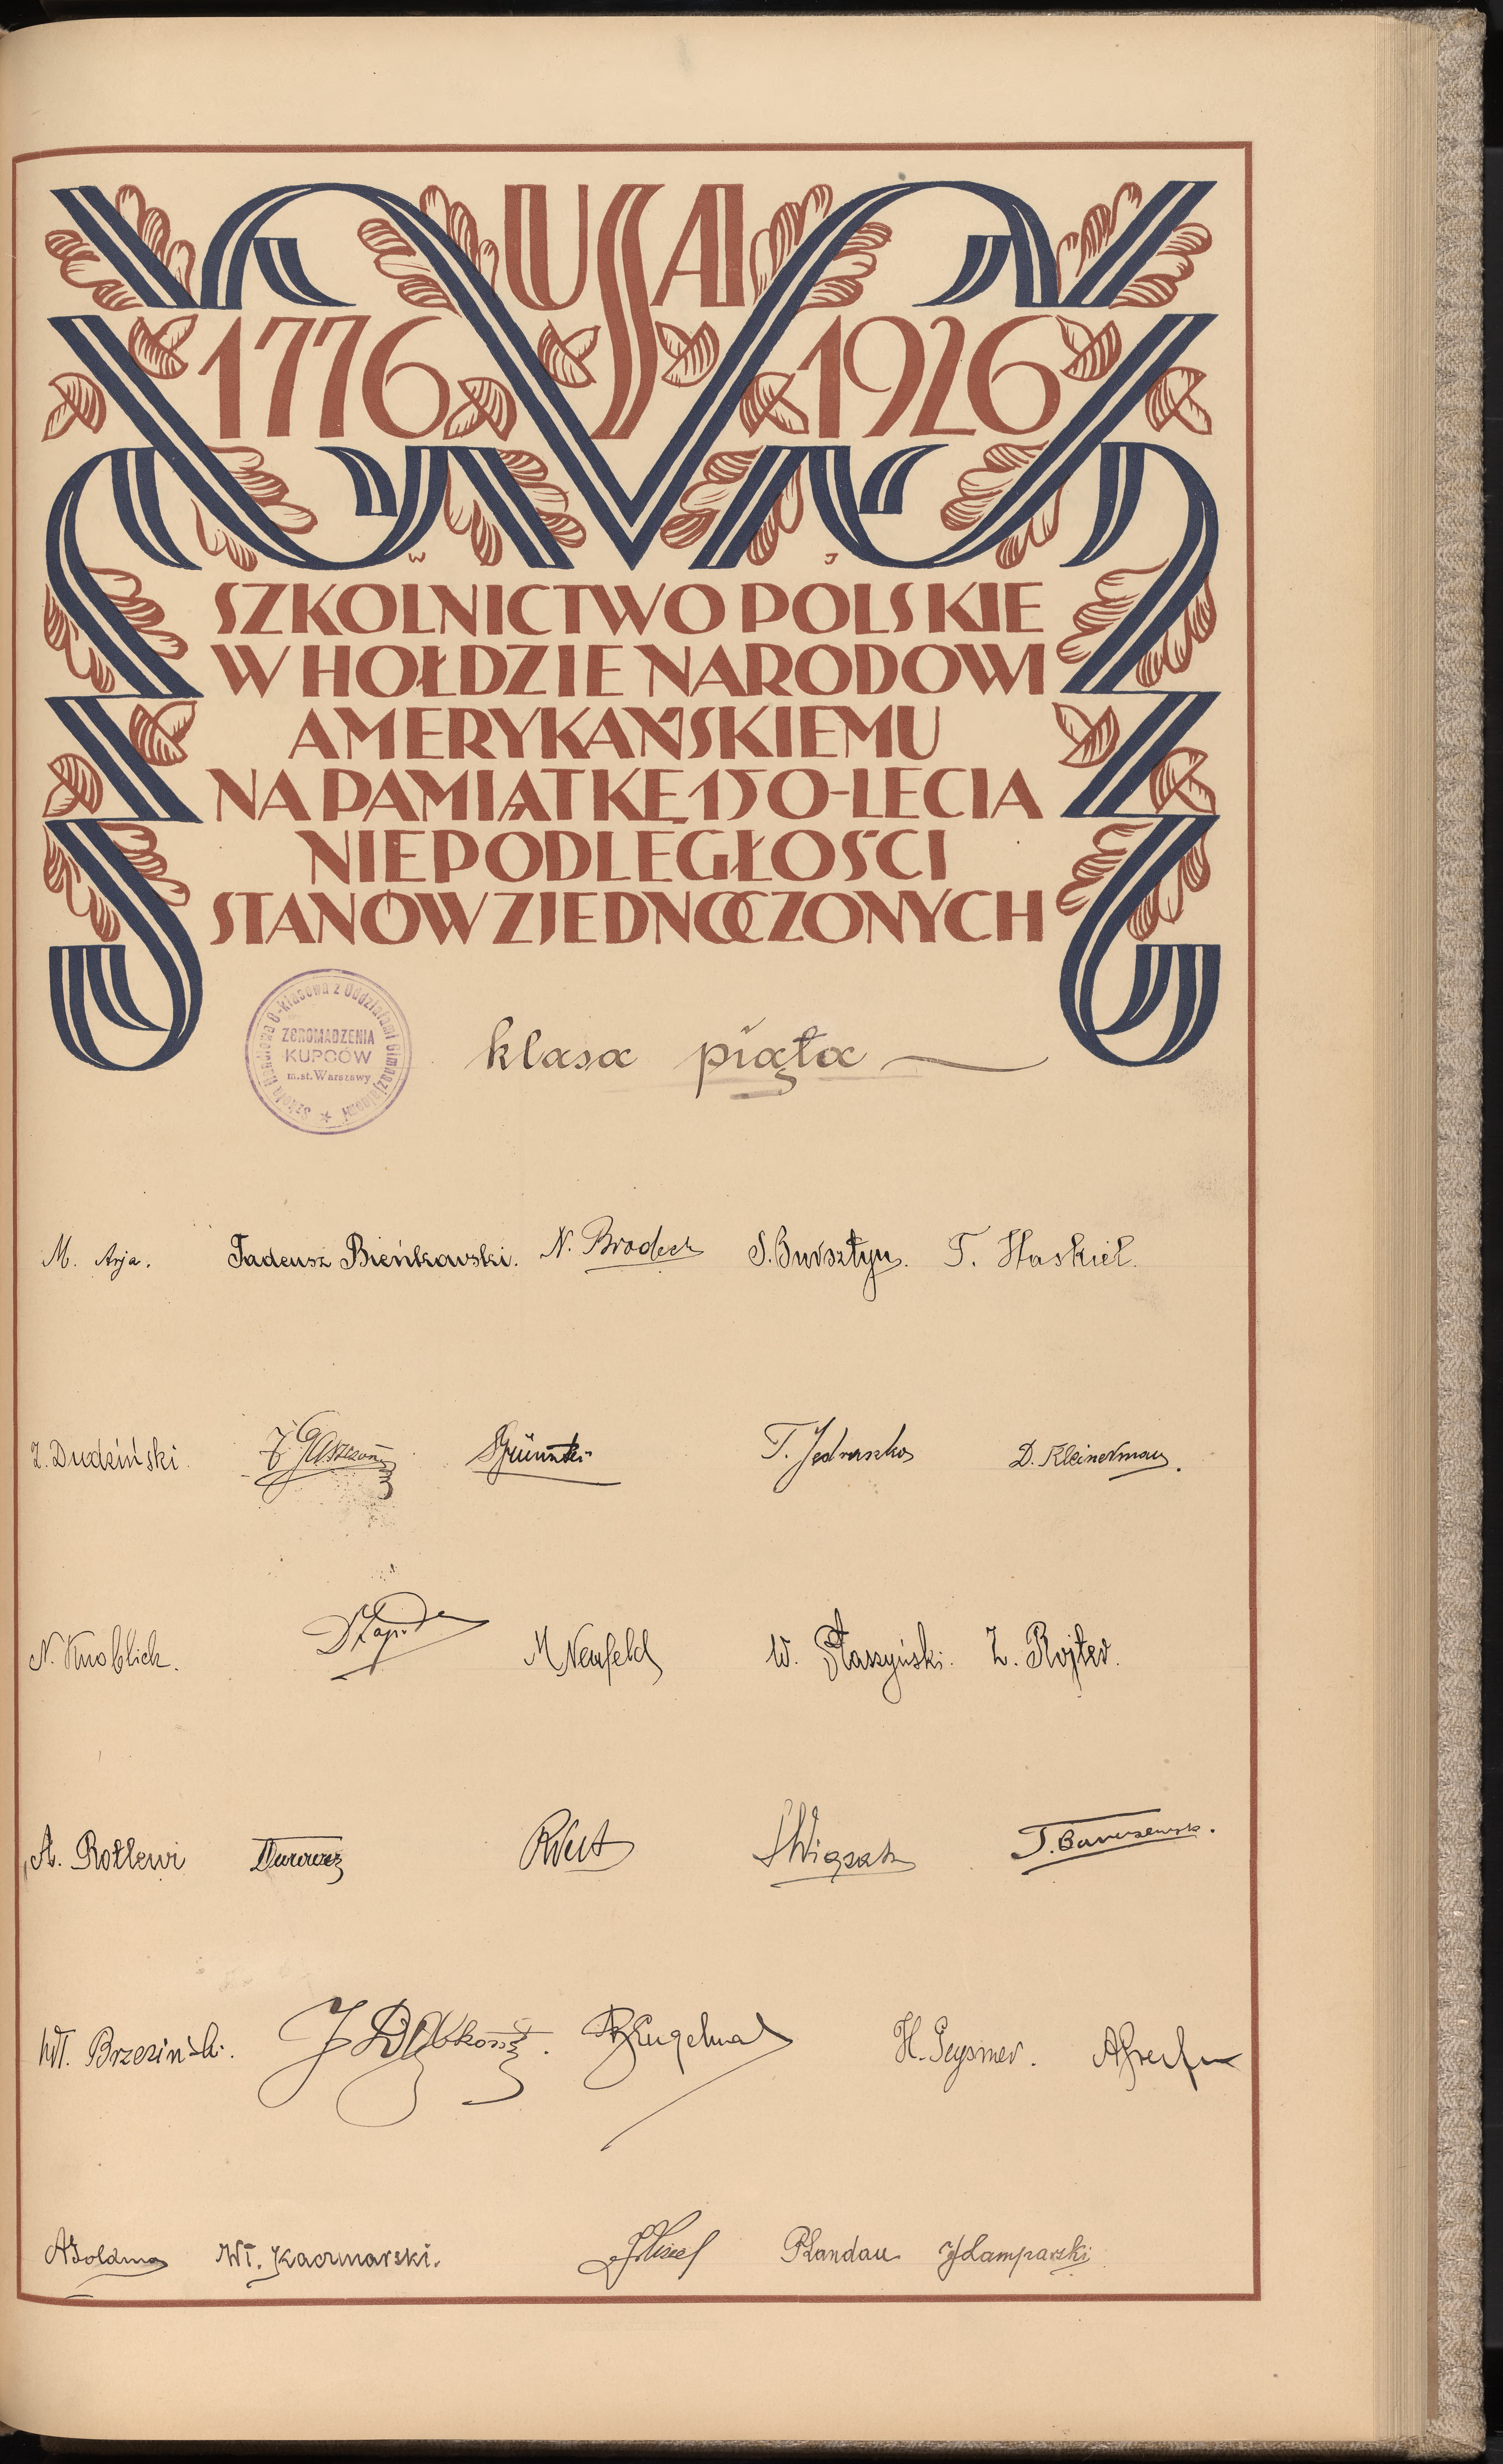 USA
1776 1926
W J
SZKOLNICTWO POLSKIE
W HOŁDZIE NARODOWI
AMERYKAŃSKIEMU
NA PAMIĄTKĘ 150-LECIA
NIEPODLEGŁOŚCI
STANÓW ZJEDNOCZONYCH
Szkoła Handlowa 8-klasowa z Oddziałami Gimnazjalnemi
ZGROMADZENIA
KUPCÓW
m. st. Warszawy
klasa piąta
M. Arja. Tadeusz Bieńkowski. N. Brodech S. Bursztyn. T. Haskiel.
Z. Dudziński T. Jedraszko D. Kleinerman.
N. Knoblich. M Neufeld W. Płaszyński. Z. Rojter.
A. Rotlewi
Wł. Brzeziński. H. Geysmer.
Wł. Kaczmarski. Landau Lamparski